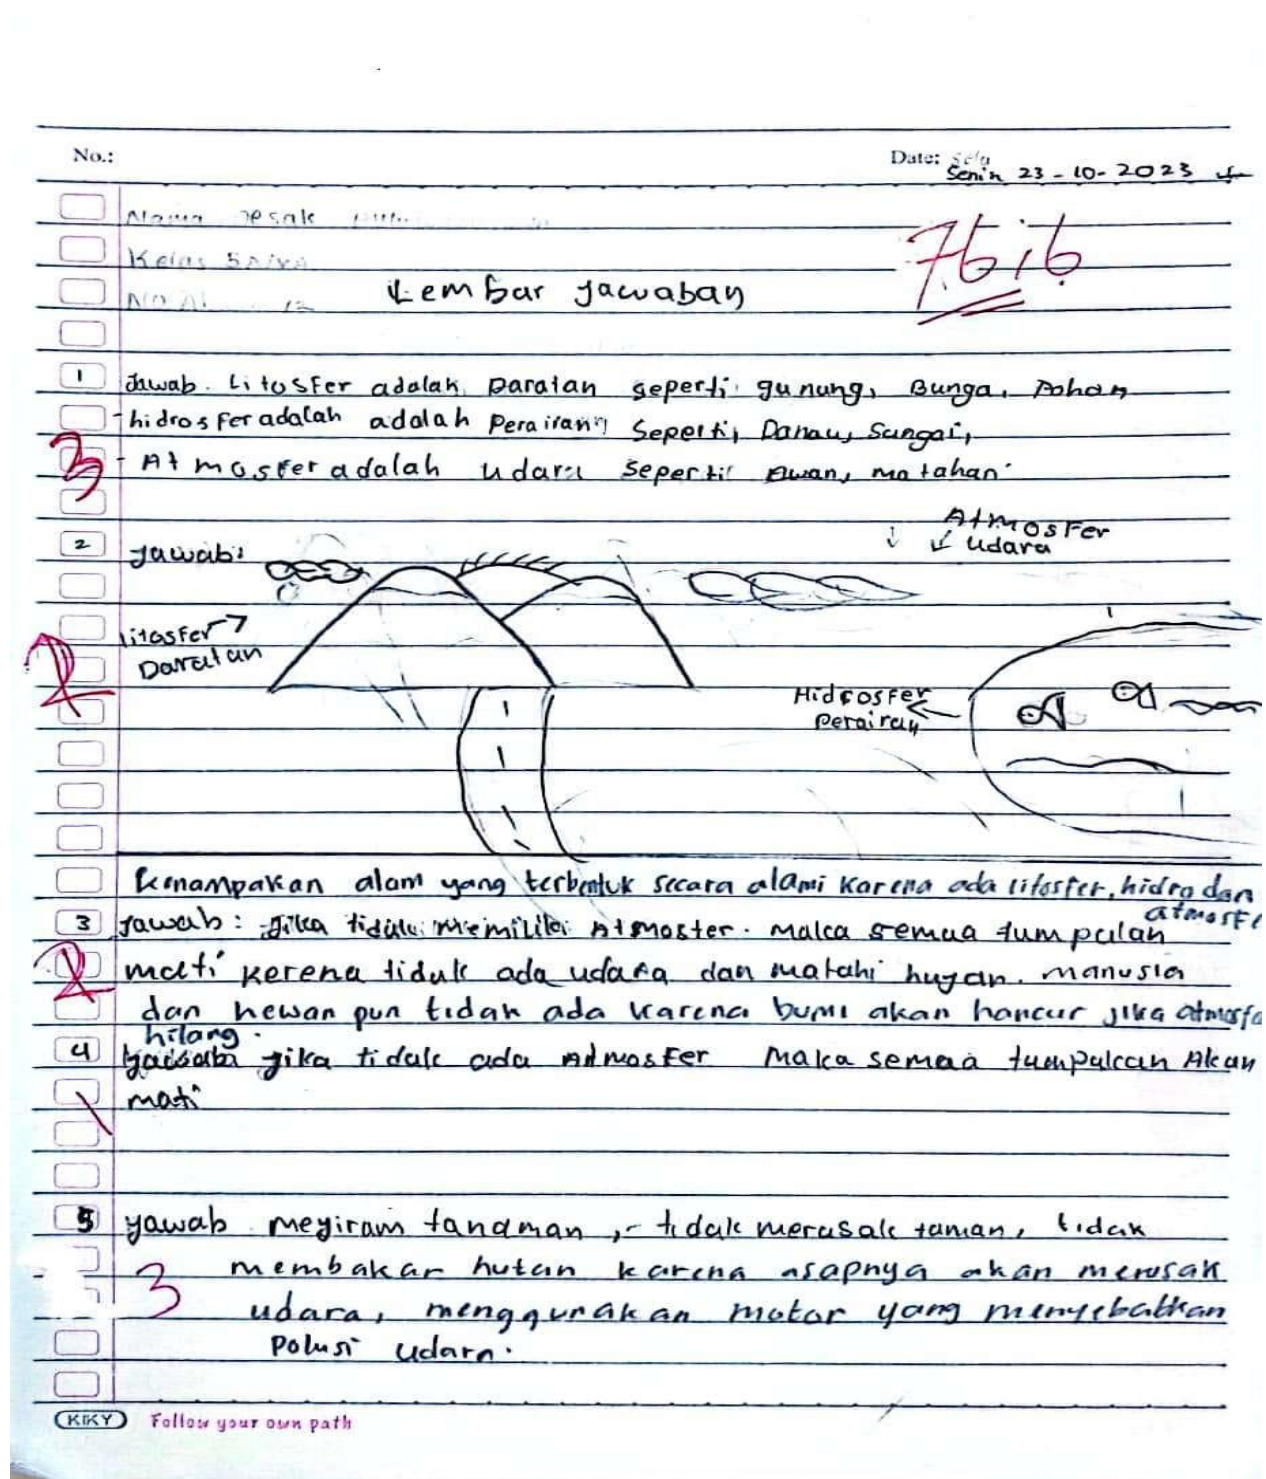 No.:
Date:
Senin 23 - 10 - 2023
Nama Desak
Kelas 5
76,6
Lembar jawaban
1 Jawab. Litosfer adalak Daratan seperti gunung, Bunga, Pohon
- hidrosfer adalah adalah Perairan Seperti, Danau, Sungai,
3
- Atmosfer adalah udara seperti awan, matahari
2 Jawab:
Atmosfer
udara
litosfer
Daratan
2
Hidrosfer
perairan
kenampakan alam yang terbentuk secara alami karena ada litosfer, hidro dan
atmosfe
3 Jawab: Jika tidak memiliki Atmosfer. maka semua tumpukan
2
mati kerena tidak ada udara dan matahi hujan. manusia
dan hewan pun tidak ada karena bumi akan hancur jika atmosfe
hilang.
4 jika tidak ada Atmosfer maka semua tumpukan Akan
mati
1
5 yawab megiram tanaman, - tidak merusak taman, tidak
membakar hutan karena asapnya akan merusak
3
udara, menggunakan motor yang menyebabkan
Polusi udara.
KIKY Follow your own path